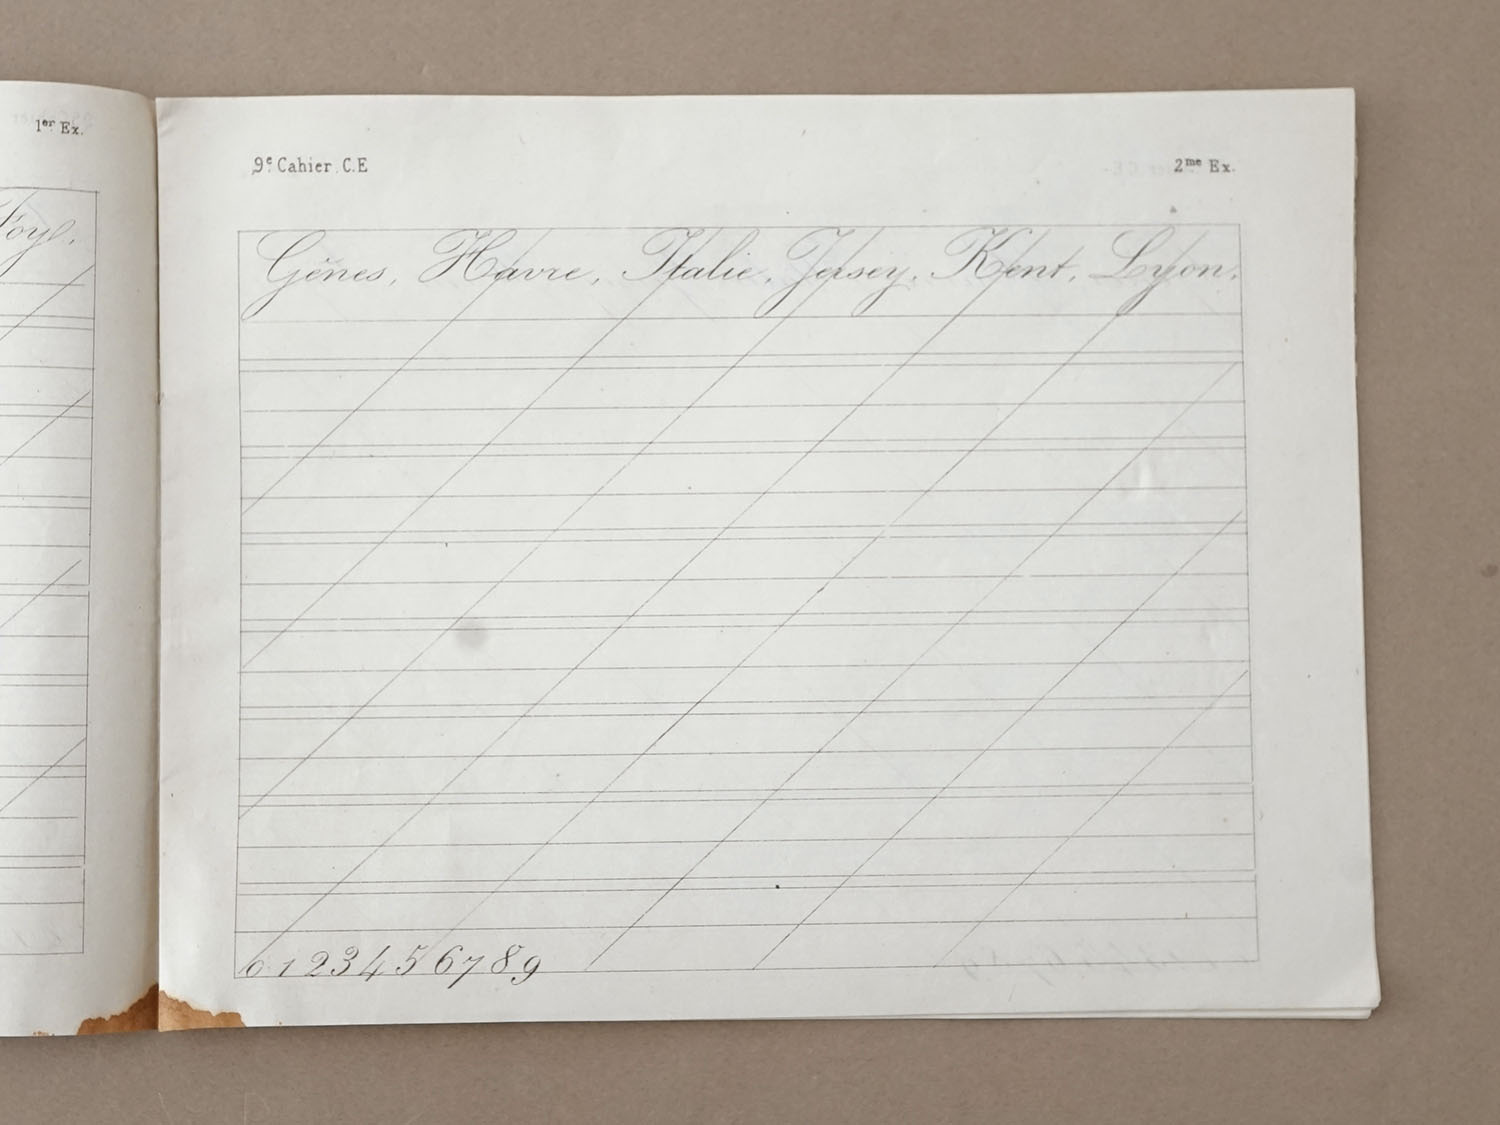 1er Ex.
9e Cahier. C.E
2me Ex.
Gênes, Havre, Italie, Jersey, Kent, Lyon.
0 1 2 3 4 5 6 7 8 9